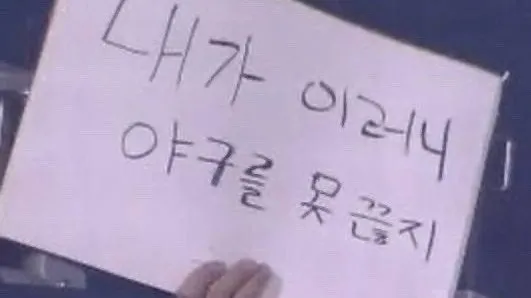 내가 이러니
야구를 못 끊지